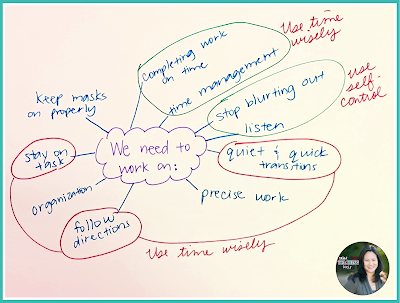 Use time
wisely
completing work
on time
time management
Use
self-
control
stop blurting out
listen
keep masks
on properly
We need to
work on:
stay on
task
quiet & quick
transitions
organization
precise work
follow
directions
Use time wisely